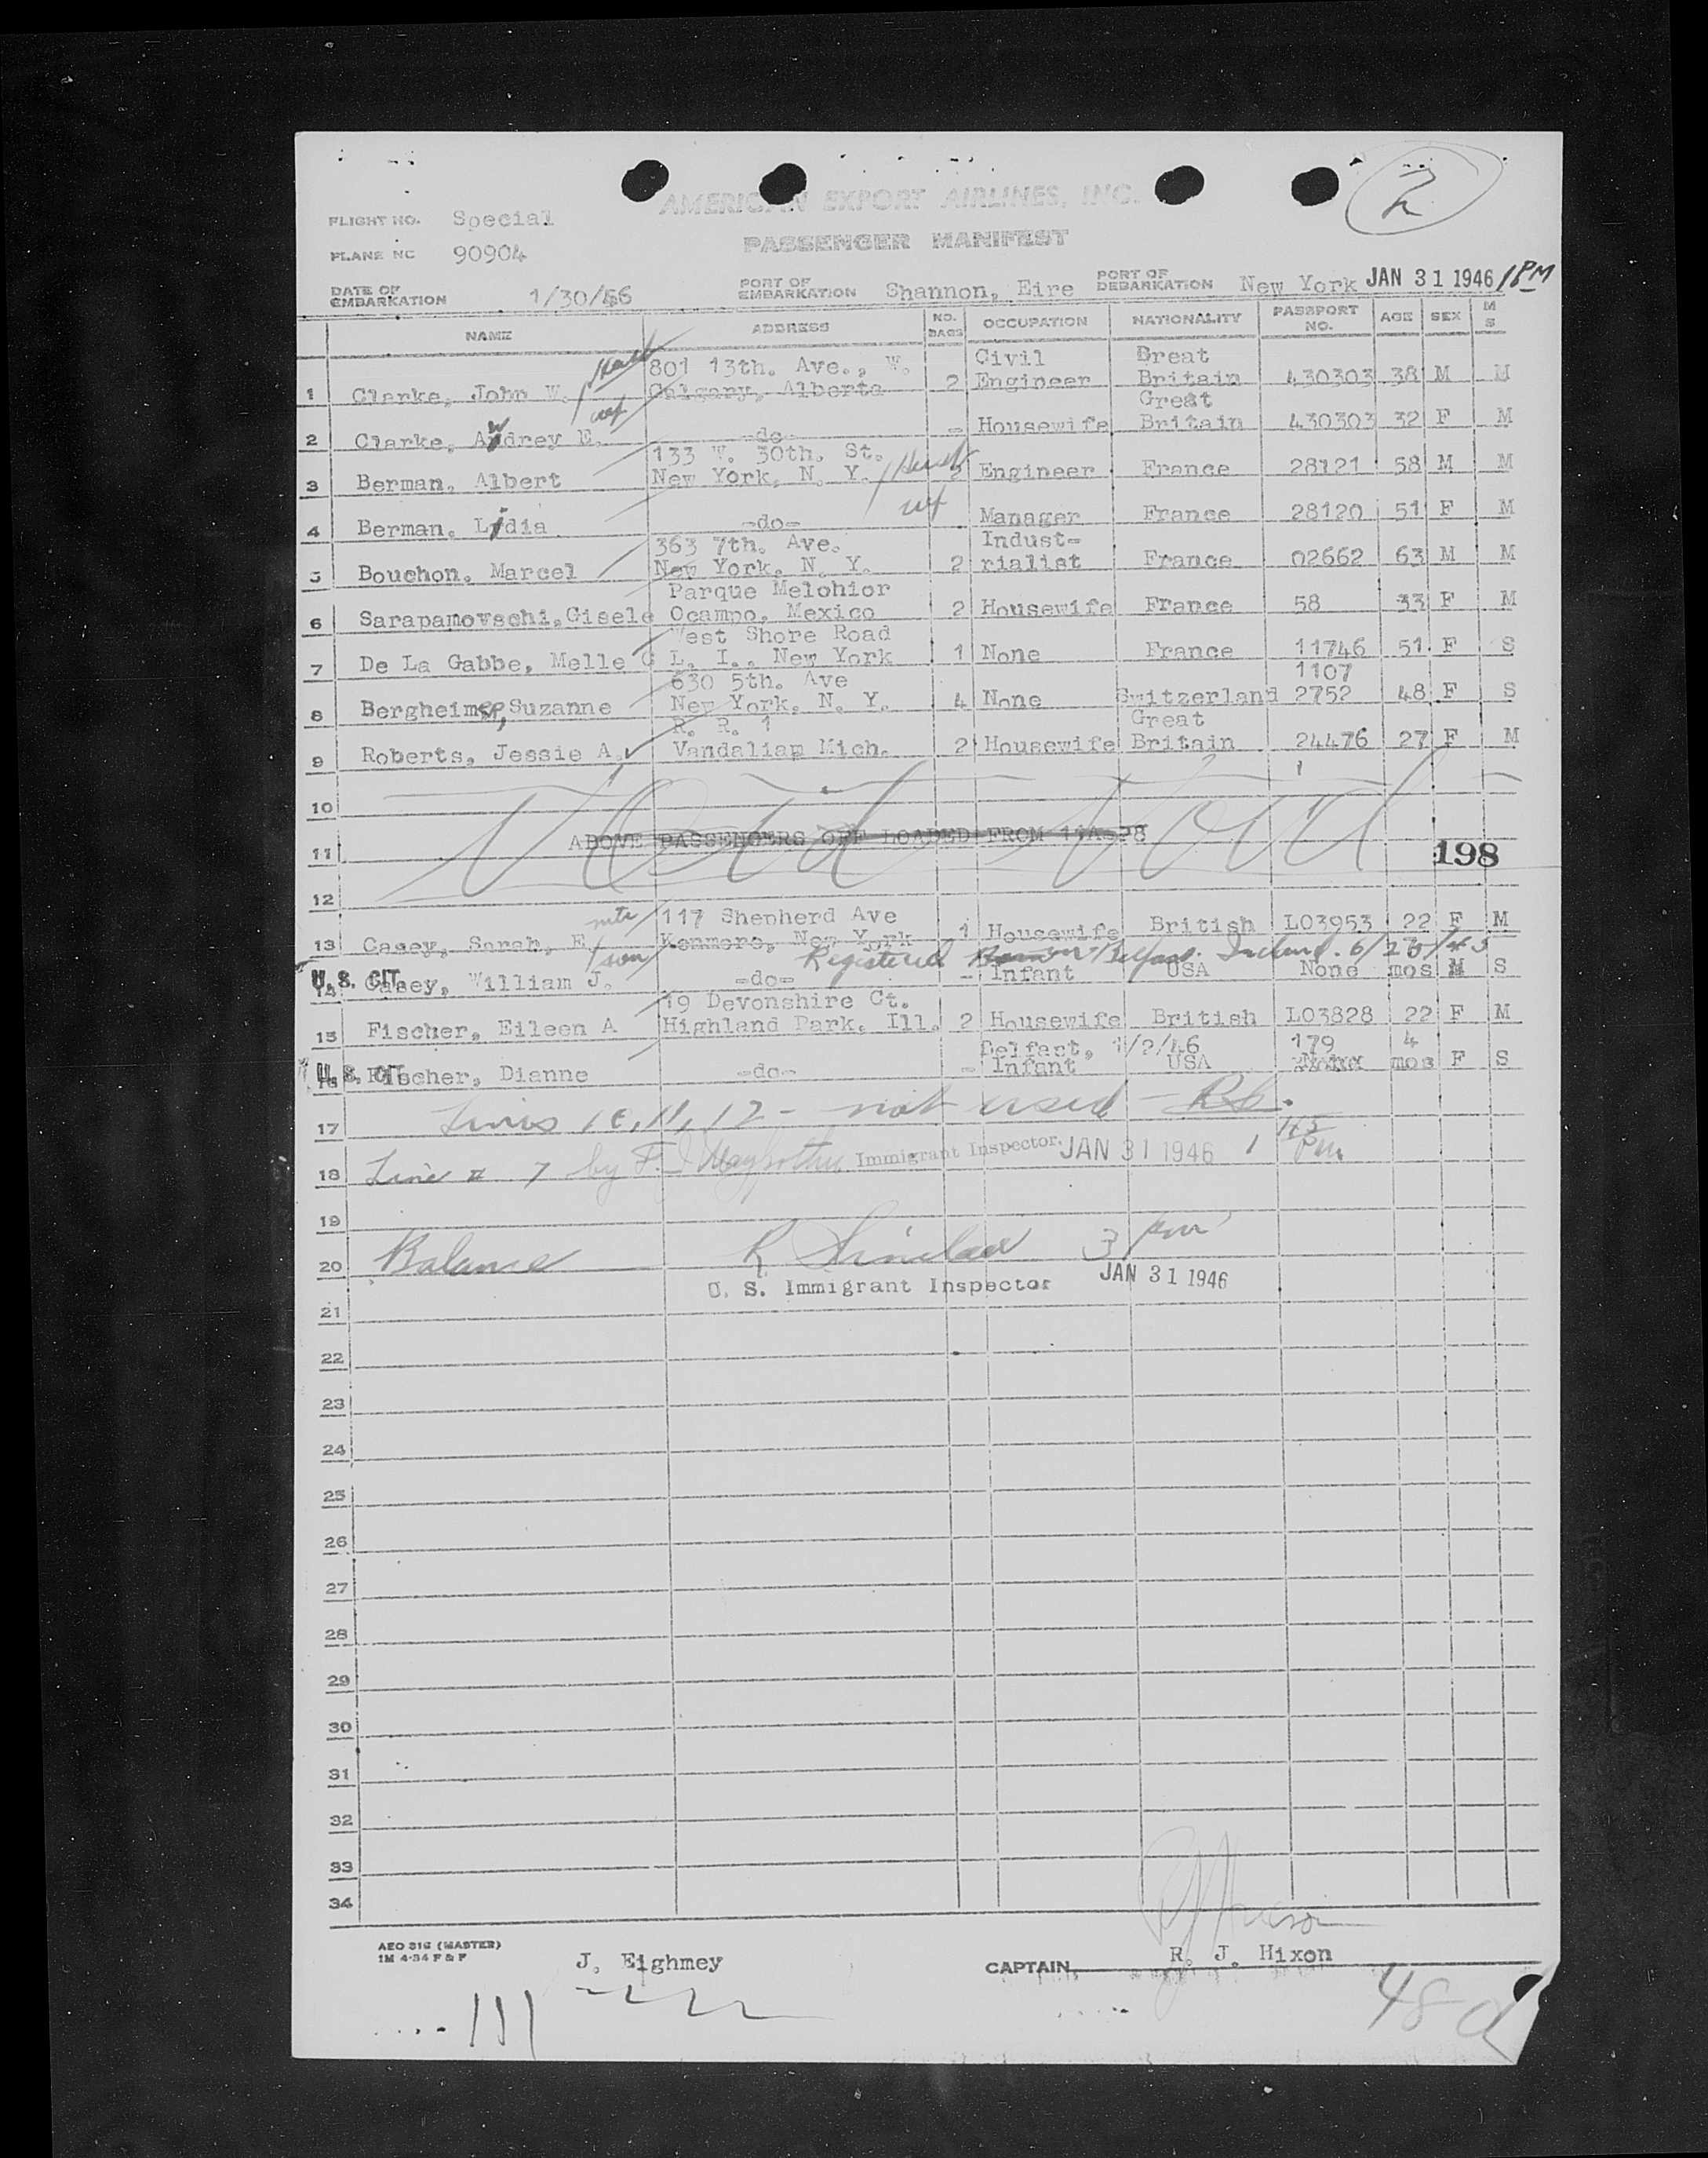 2
AMERICAN EXPORT AIRLINES, INC.
PASSENGER MANIFEST
FLIGHT NO. Special
PLANE NC 90904
DATE OF EMBARKATION 1/30/46 PORT OF EMBARKATION Shannon, Eire PORT OF DEBARKATION New York JAN 31 1946 1PM
NAME ADDRESS NO. BAGS OCCUPATION NATIONALITY PASSPORT NO. AGE SEX M S
801 13th. Ave., W. Civil Great
1 Clarke, John W. /Husb Calgary, Alberta 2 Engineer Britain 430303 38 M M
wf Great
2 Clarke, Audrey E. -do- - Housewife Britain 430303 32 F M
133 W. 30th. St.
3 Berman, Albert New York, N. Y. /Husb 2 Engineer France 28121 58 M M
wf
4 Berman, Lidia -do- Manager France 28120 51 F M
363 7th. Ave. Indust-
5 Bouchon, Marcel New York, N. Y. 2 rialist France 02662 63 M M
Parque Melchior
6 Sarapamovschi, Gisele Ocampo, Mexico 2 Housewife France 58 33 F M
West Shore Road
7 De La Gabbe, Melle G L. I., New York 1 None France 11746 51 F S
630 5th. Ave 1107
8 Bergheimer, Suzanne New York, N. Y. 4 None Switzerland 2752 48 F S
R. R. 1 Great
9 Roberts, Jessie A. Vandaliap Mich. 2 Housewife Britain 24476 27 F M
10
Void Void
11 ABOVE PASSENGERS OFF LOADED FROM 11A-28 198
12
mtr 117 Shepherd Ave
13 Casey, Sarah, E Kenmore, New York 1 Housewife British L03953 22 F M
/son Registered Belfast. Ireland. 6/28/45
U.S. CIT.
14 Casey, William J. -do- - Infant USA None mos M S
19 Devonshire Ct.
15 Fischer, Eileen A Highland Park, Ill. 2 Housewife British L03828 22 F M
Belfast, 1/2/46 179 4
U.S. CIT.
16 Fischer, Dianne -do- - Infant USA mos F S
17 Lines 10, 11, 12 - not used - RS.
18 Line # 7 by F. J. Immigrant Inspector. JAN 31 1946 1 45 Pm
19
20 Balance R Sinclair 3 pm
U. S. Immigrant Inspector JAN 31 1946
21
22
23
24
25
26
27
28
29
30
31
32
33
34
AEO 316 (MASTER)
1M 4-54 F & P
J. Eighmey CAPTAIN R. J. Hixon
48 d